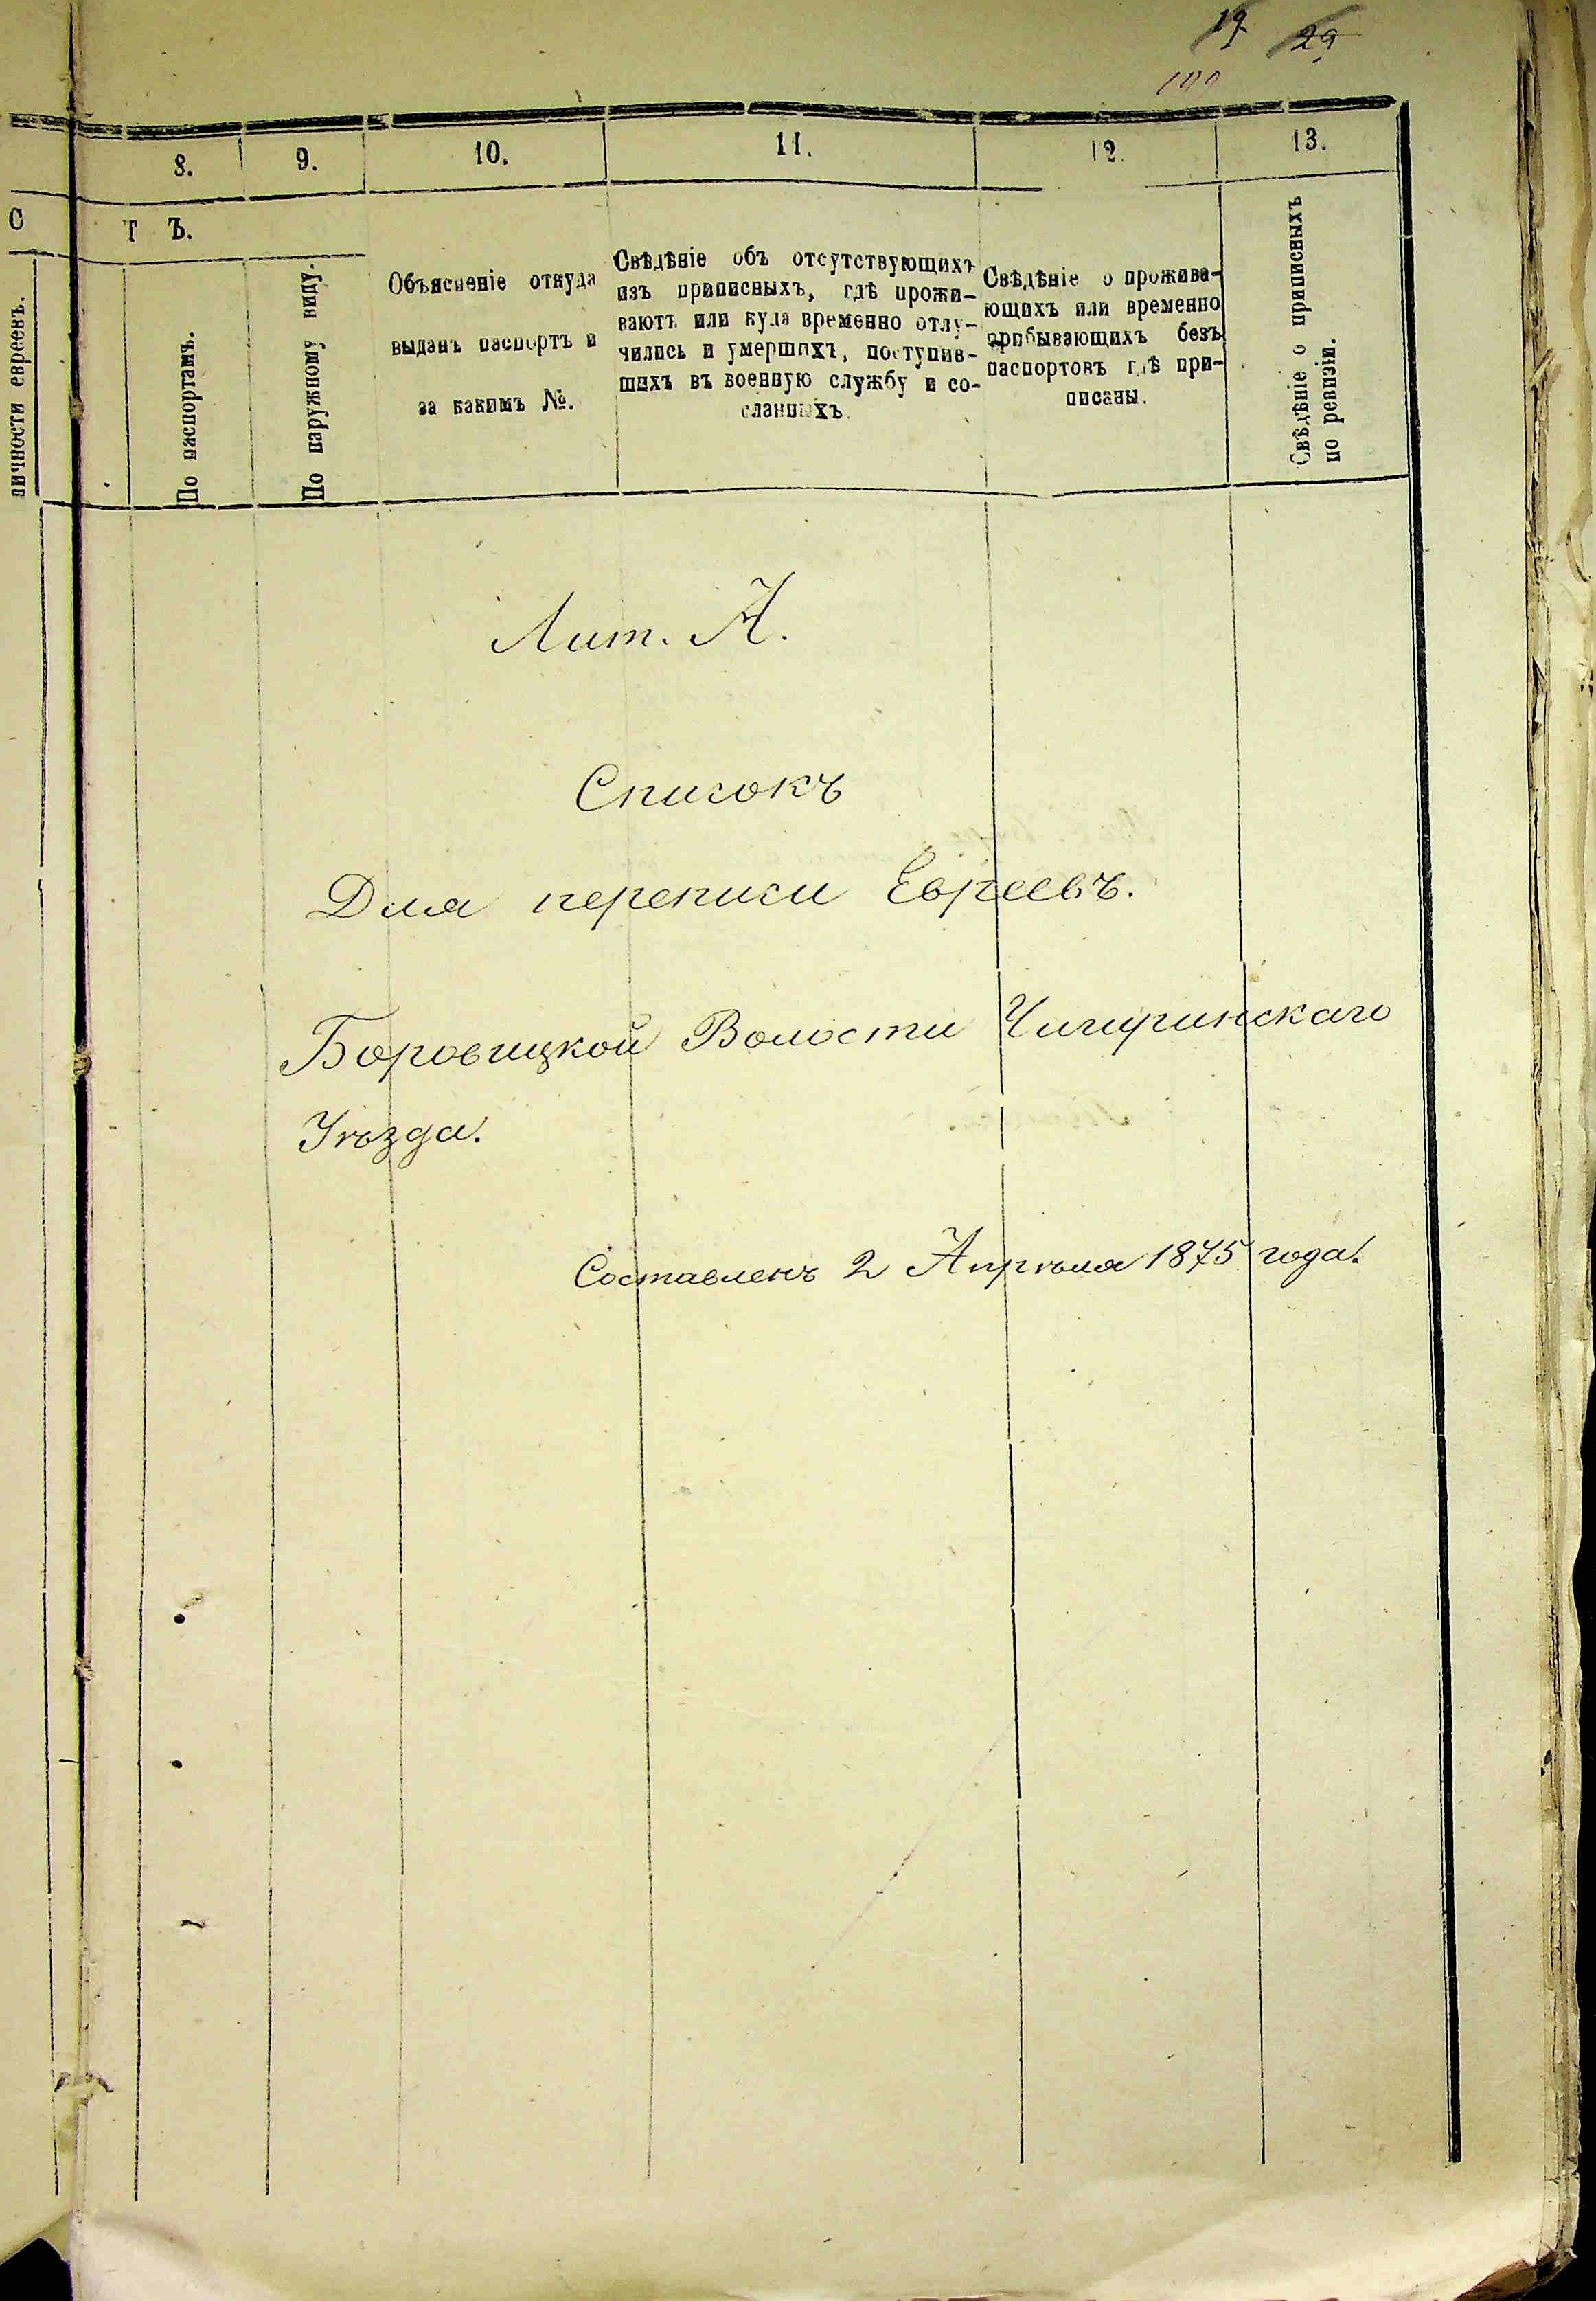 19 29
8. 9. 10. 11. 12. 13.
С Т Ъ.
личности евреевъ.
По паспортамъ.
По наружному виду.
Объясненіе откуда
выданъ паспортъ и
за какимъ №.
Свѣдѣніе объ отсутствующихъ
изъ приписныхъ, гдѣ прожи-
ваютъ или куда временно отлу-
чились и умершихъ, поступив-
шихъ въ военную службу и со-
сланныхъ.
Свѣдѣніе о прожива-
ющихъ или временно
прибывающихъ безъ
паспортовъ гдѣ при-
писаны.
Свѣдѣніе о приписныхъ
по ревизіи.
Лит. А.
Списокъ
Для переписи Евреевъ.
Боровицкой Волости Чигиринскаго
Уѣзда.
Составленъ 2 Апрѣля 1875 года.